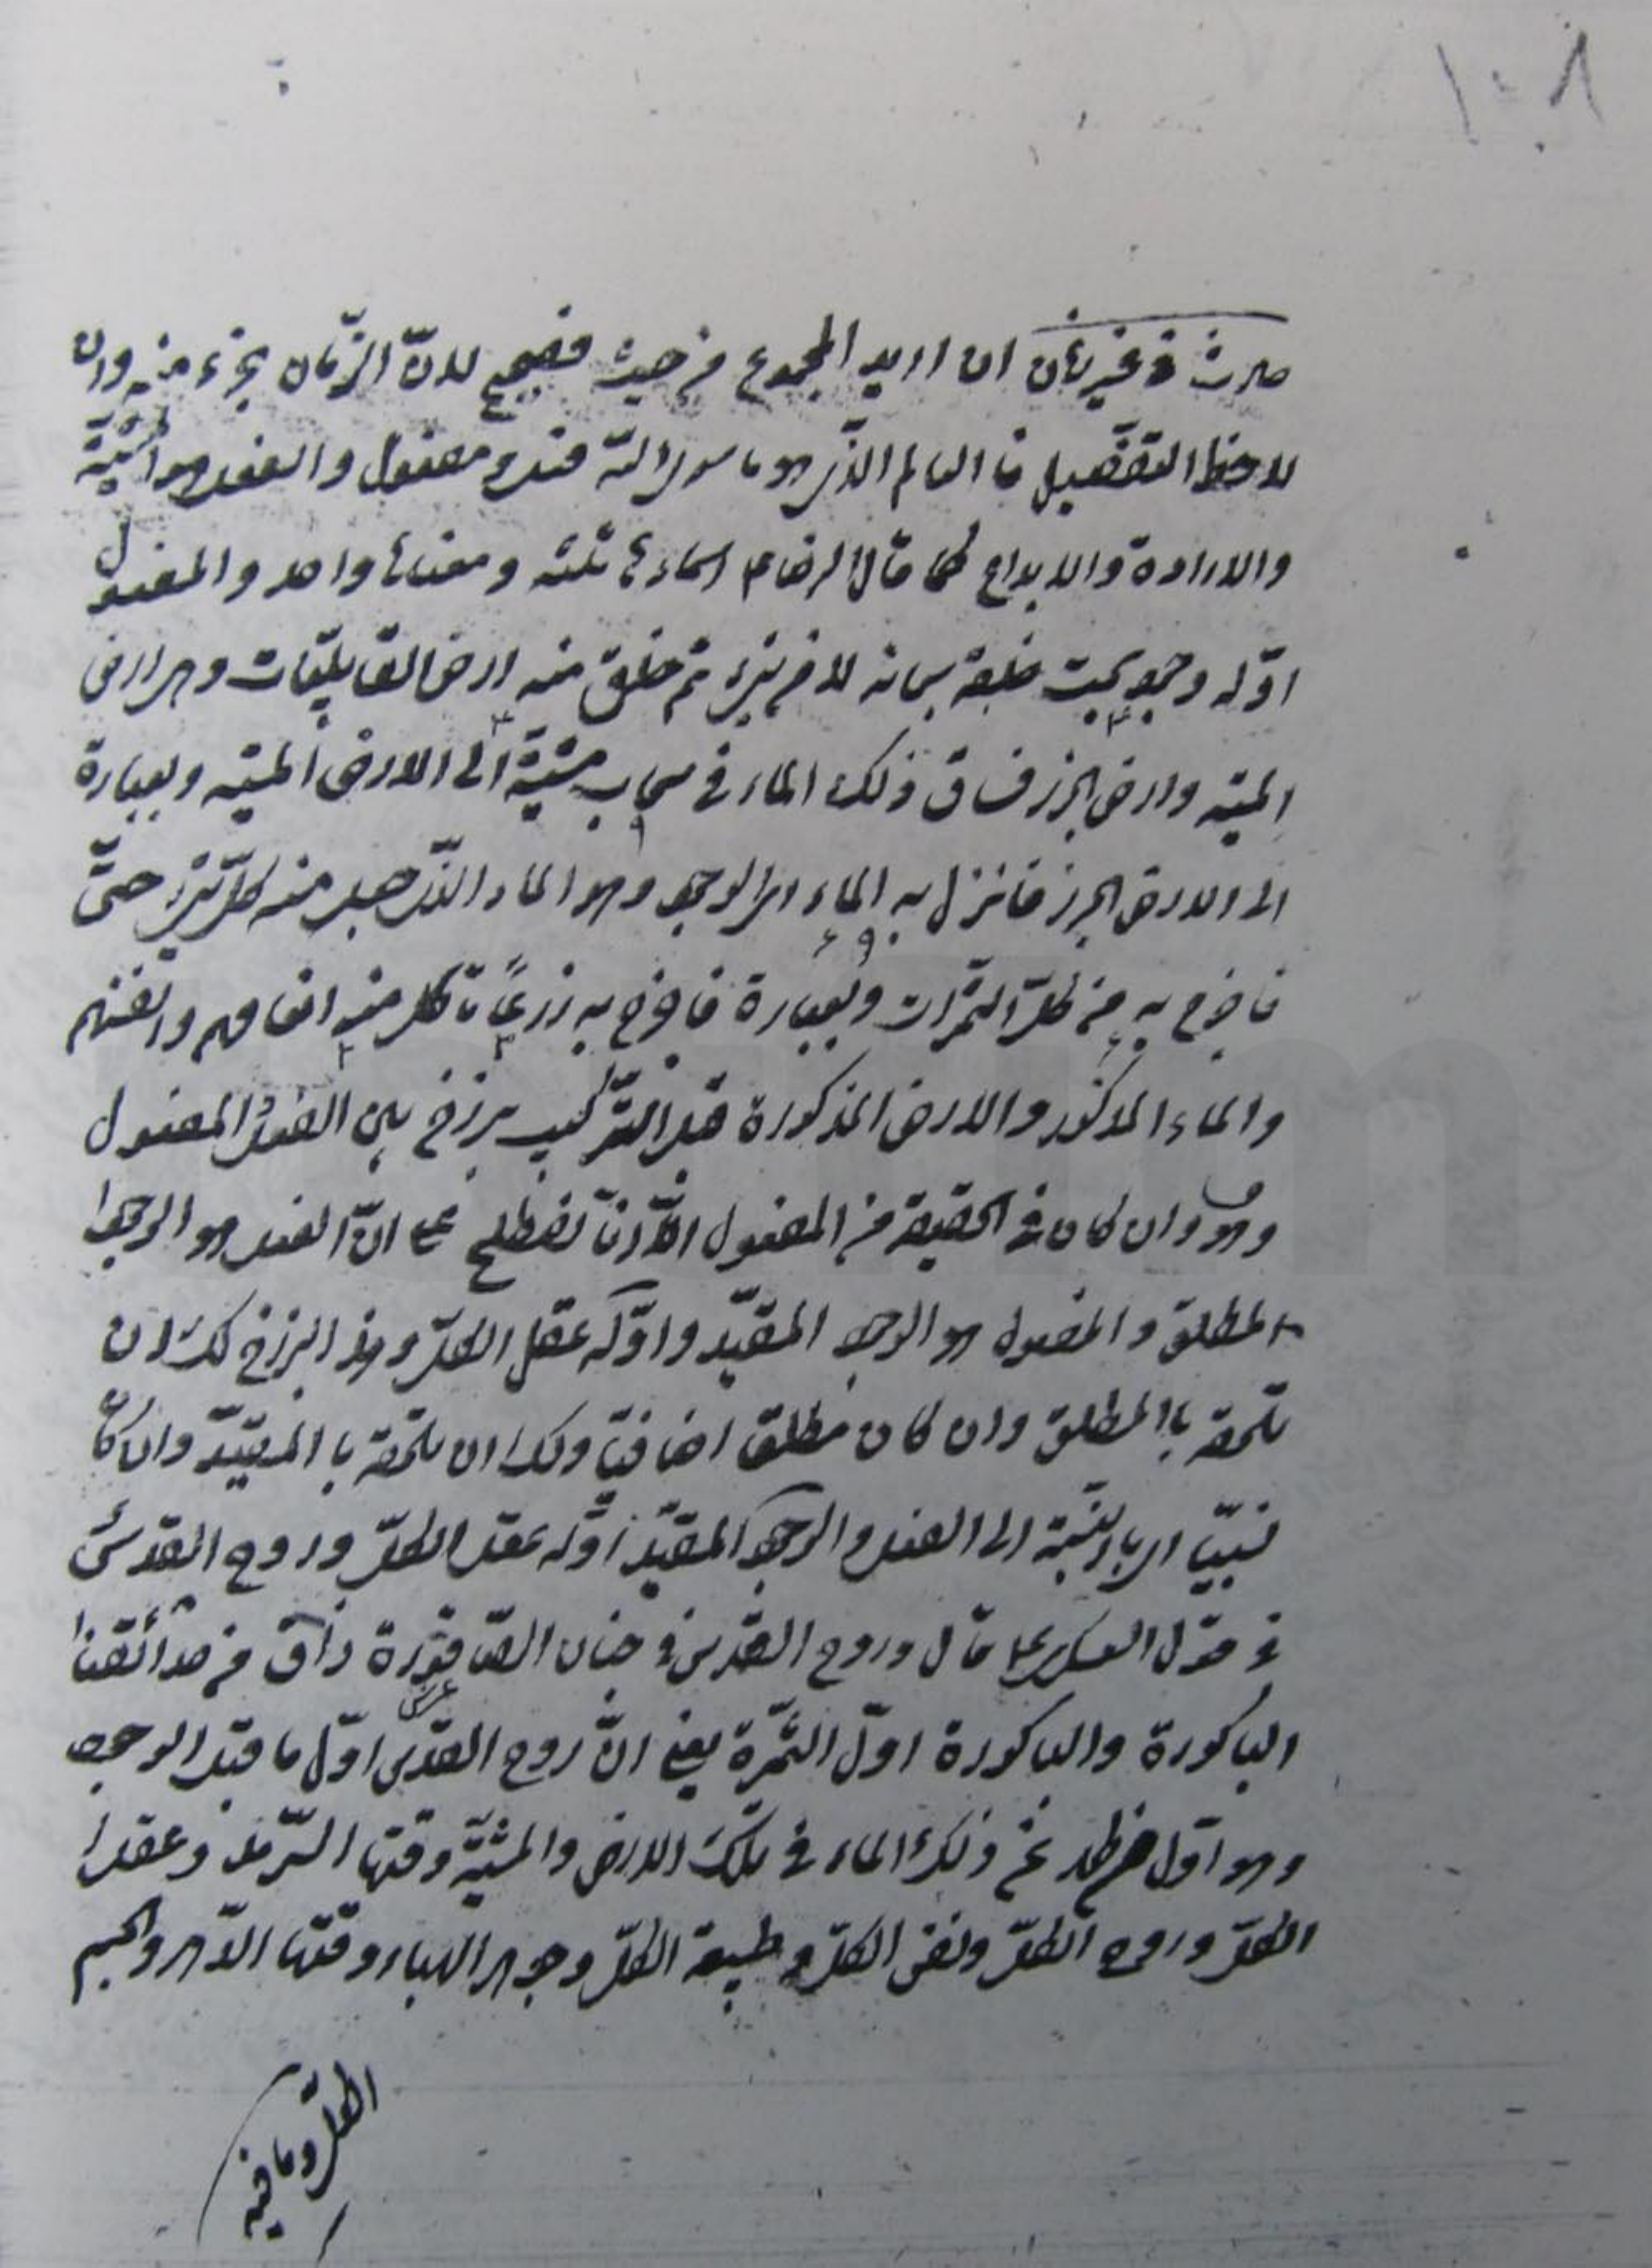 ١٠٨
حادث في غير زمان ان اريد المجموع من حيث فصحيح لانّ الزّمان جزء منه وان
لاحظ التفصيل فالعالم الذّى هو ما سوى الله فعل و مفعول والفعل هو المشيّة
والارادة والابداع كما قال الرضا ع اسماءها ثلثه و معناها واحد والمفعول
اوّله وجود بحت خلقه سبحانه لا من شىء ثم خلق منه ارض القابليّات وهى ارض
الميته وارض الجرز فساق ذلك الماء فى سحاب مشيّة الى الارض الميته وبعبارة
الى الارض الجرز فانزل به الماء اى الوجود وهو الماء الذّى جعل منه كلّ شىء حىّ
فاخرج به من كلّ الثّمرات وبعبارة فاخرج به زرعًا تاكل منه انعامهم وانفسهم
والماء المذكور والارض المذكورة قبل التّركيب برزخ بين الفعل و المفعول
وهو وان كان فى الحقيقة من المفعول الّا انّا نصطلح على انّ الفعل هو الوجود
المطلق والمفعول هو الوجود المقيّد واوّله عقل الكلّ وهذ البرزخ لك ان
تلحقه باالمطلق وان كان مطلق اضافيّا ولك ان تلحقه با المقيّد وان كان
نسبيّا اى بالنسبة الى الفعل والوجود المقيّد اوّله عقل الكلّ وروح القدس
فى قول العسكرى ع قال وروح القدس فى جنان الصّاقورة ذاق من حدائقنا
الباكورة والباكورة اوّل الثّمرة يعنى انّ روح القدس اوّل ما قبل الوجود
وهو اوّل غصن ذلك الماء فى تلك الارض والمشيّة وقتها السّرمد وعقل
الكلّ وروح الكلّ ونفس الكلّ و طبيعة الكلّ وجوهر الهباء وقتها الدّهر وجسم
الكلّ وما فيه